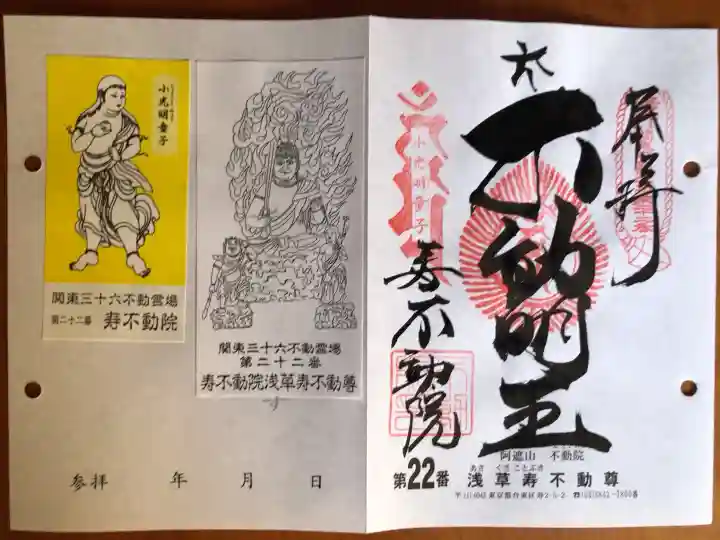 小光明童子
関東三十六不動霊場
第二十二番 寿不動院
関東三十六不動霊場
第二十二番
寿不動院浅草寿不動尊
参拝 年 月 日
奉拝
大
不動明王
小光明童子
寿不動院
阿遮山 不動院
あさ くさ ことぶき
第22番 浅草寿不動尊